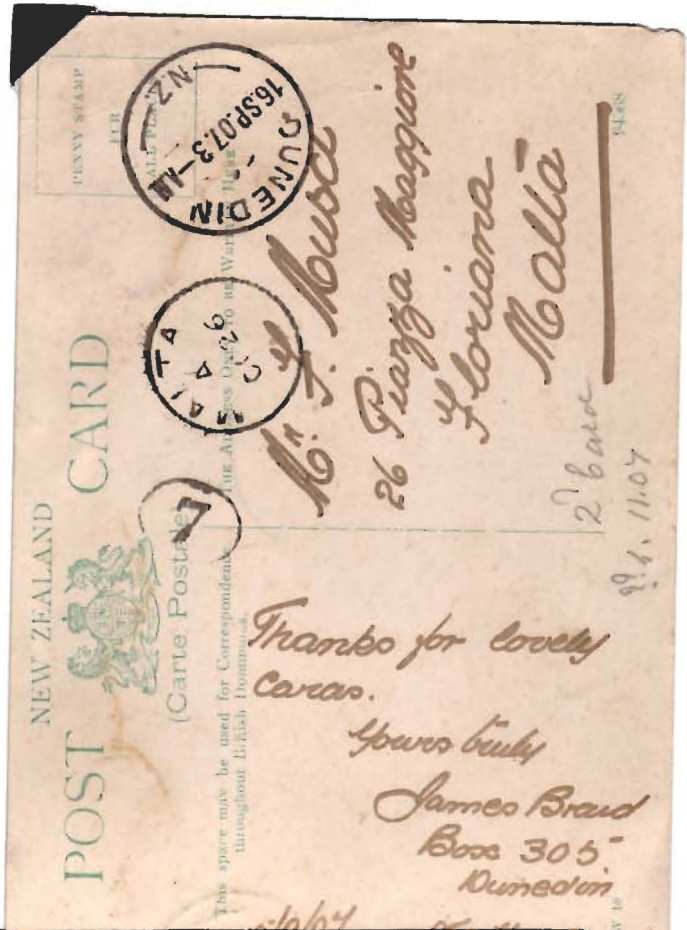 NEW ZEALAND
POST CARD
(Carte Postale)
PENNY STAMP
FOR
ALL
This space may be used for Correspondence
throughout British Dominions.
THE ADDRESS ONLY TO BE
DUNEDIN
16.SP.07.3-AM
N.Z
MALTA
A
OC 26
V
Mr. F.
26 Piazza Maggiore
Floriana
Malta
2d Card
11.07
Thanks for lovely
Cards.
Yours truly
James Braid
Box 305
Dunedin